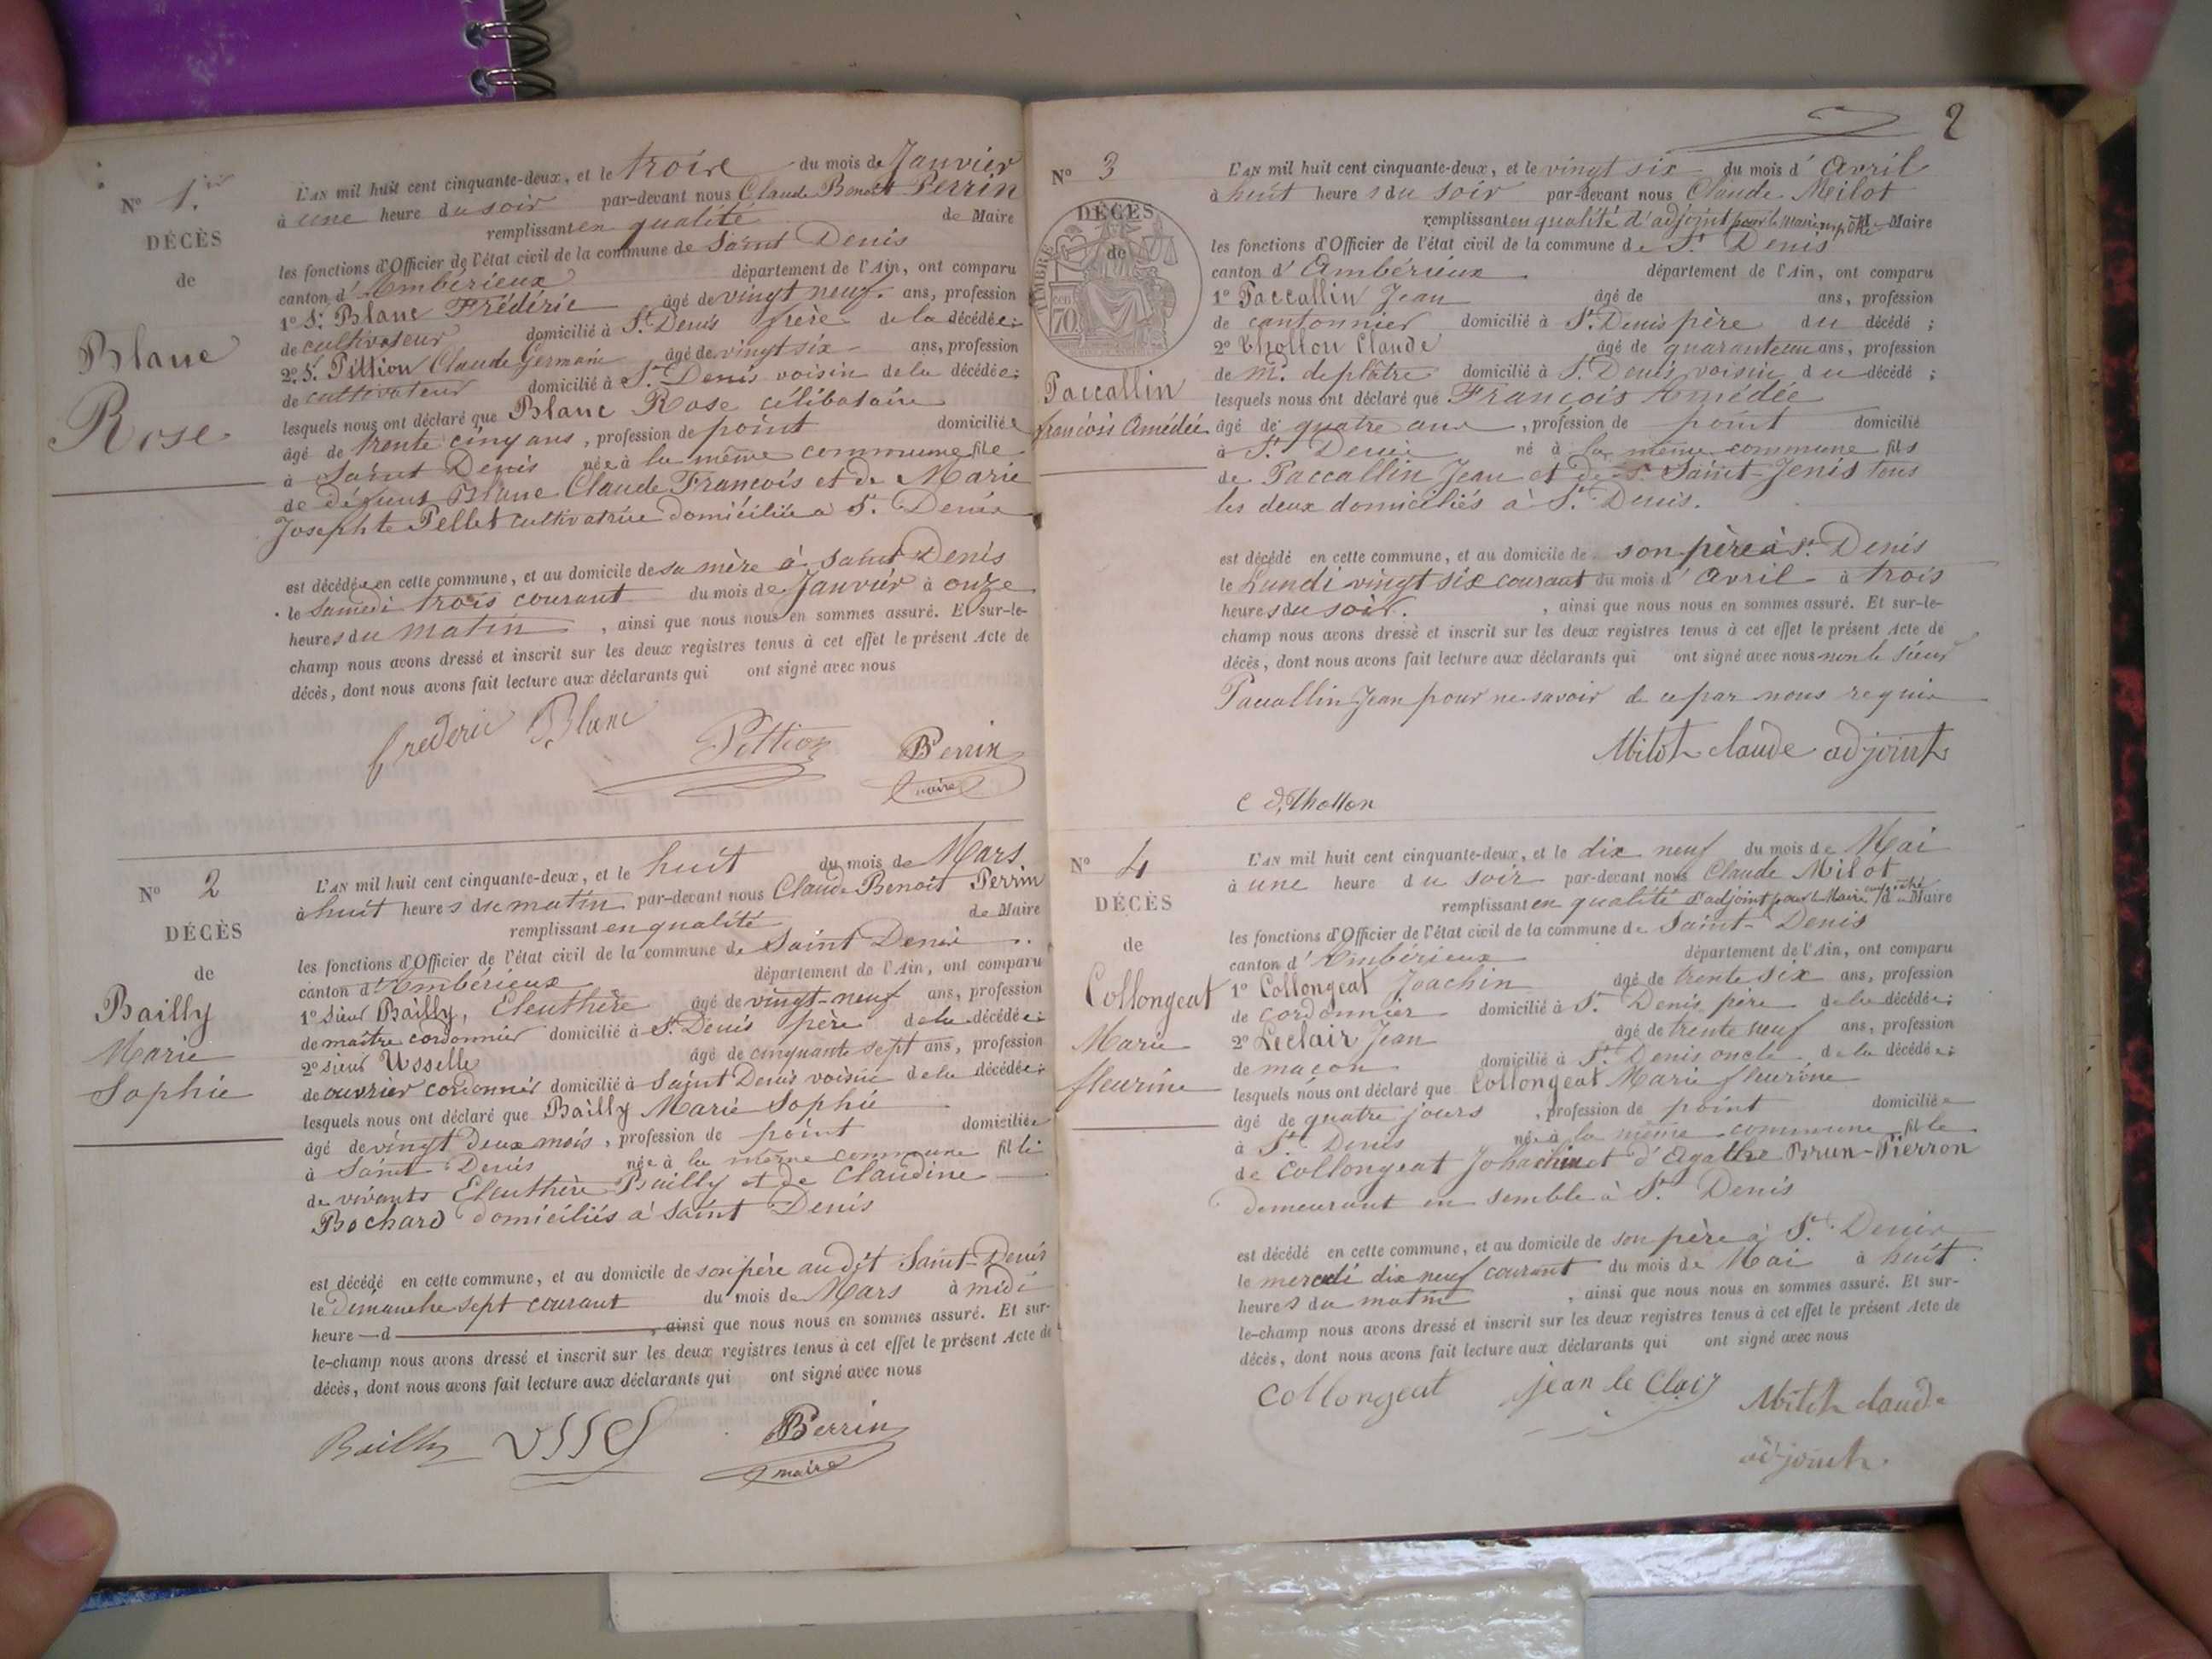 No 1.er
DÉCÈS
de
Blanc
Rose
L'AN mil huit cent cinquante-deux, et le trois du mois de Janvier
à une heure du soir par-devant nous Claude Benoit Perrin
remplissant en qualité de Maire
les fonctions d'Officier de l'état civil de la commune de Saint Denis
canton d'Ambérieux département de l'Ain, ont comparu
1o S.r Blanc Frédéric âgé de vingt neuf ans, profession
de cultivateur domicilié à St. Denis frère de la décédée;
2o S.r Pittion Claude Germain âgé de vingt six ans, profession
de cultivateur domicilié à St. Denis voisin de la décédée;
lesquels nous ont déclaré que Blanc Rose célibataire
âgé de trente cinq ans, profession de point domiciliée
à Saint Denis née à la même commune fille
de défunt Blanc Claude François et de Marie
Josephte Pellet cultivatrice domiciliée à St. Denis
est décédée en cette commune, et au domicile de sa mère à Saint Denis
le Samedi trois courant du mois de Janvier à onze
heures du matin, ainsi que nous nous en sommes assuré. Et sur-le-
champ nous avons dressé et inscrit sur les deux registres tenus à cet effet le présent Acte de
décès, dont nous avons fait lecture aux déclarants qui ont signé avec nous
frederic Blanc Pittion Perrin
maire
No 2
DÉCÈS
de
Bailly
Marie
Sophie
L'AN mil huit cent cinquante-deux, et le huit du mois de Mars
à huit heures du matin par-devant nous Claude Benoit Perrin
remplissant en qualité de Maire
les fonctions d'Officier de l'état civil de la commune de Saint Denis
canton d'Ambérieux département de l'Ain, ont comparu
1o Sieur Bailly, Eleuthère âgé de vingt-neuf ans, profession
de maître cordonnier domicilié à St. Denis père de la décédée;
2o sieur Usselle âgé de cinquante sept ans, profession
de ouvrier cordonnier domicilié à Saint Denis voisin de la décédée;
lesquels nous ont déclaré que Bailly Marie Sophie
âgé de vingt deux mois, profession de point domiciliée
à Saint Denis née à la même commune fille
de vivants Eleuthère Bailly et de Claudine
Bochard domiciliés à Saint Denis
est décédé en cette commune, et au domicile de son père audit Saint-Denis
le Dimanche sept courant du mois de Mars à midi
heure d , ainsi que nous nous en sommes assuré. Et sur-
le-champ nous avons dressé et inscrit sur les deux registres tenus à cet effet le présent Acte de
décès, dont nous avons fait lecture aux déclarants qui ont signé avec nous
Bailly Perrin
maire
2
No 3
DÉCÈS
de
TIMBRE
70
Paccallin
françois Amédée
L'AN mil huit cent cinquante-deux, et le vingt six du mois d'Avril
à huit heures du soir par-devant nous Claude Milot
remplissant en qualité d'adjoint pour le Maire Maire
les fonctions d'Officier de l'état civil de la commune de St. Denis
canton d'Ambérieux département de l'Ain, ont comparu
1o Paccallin Jean âgé de ans, profession
de cantonnier domicilié à St. Denis père du décédé;
2o Thollon Claude âgé de quarante un ans, profession
de m.d de plâtre domicilié à St. Denis voisin du décédé;
lesquels nous ont déclaré que François Amédée
âgé de quatre ans, profession de point domicilié
à St. Denis né à la même commune fils
de Paccallin Jean et de Saint-Jenis tous
les deux domiciliés à St. Denis.
est décédé en cette commune, et au domicile de son père à St. Denis
le Lundi vingt six courant du mois d'Avril à trois
heures du soir, ainsi que nous nous en sommes assuré. Et sur-le-
champ nous avons dressé et inscrit sur les deux registres tenus à cet effet le présent Acte de
décès, dont nous avons fait lecture aux déclarants qui ont signé avec nous non le sieur
Paccallin Jean pour ne savoir de ce par nous requis
Milot claude adjoint
C d. Thollon
No 4
DÉCÈS
de
Collongeat
Marie
fleurine
L'AN mil huit cent cinquante-deux, et le dix neuf du mois de Mai
à une heure du soir par-devant nous Claude Milot
remplissant en qualité d'adjoint pour le Maire empêché de Maire
les fonctions d'Officier de l'état civil de la commune de Saint-Denis
canton d'Ambérieux département de l'Ain, ont comparu
1o Collongeat Joachin âgé de trente six ans, profession
de cordonnier domicilié à St. Denis père de la décédée;
2o Leclair Jean âgé de trente neuf ans, profession
de maçon domicilié à St. Denis oncle de la décédée;
lesquels nous ont déclaré que Collongeat Marie fleurine
âgé de quatre jours, profession de point domiciliée
à St. Denis née à la même commune fille
de Collongeat Johachin et d'Agathe Brun-Pierron
demeurant en semble à St. Denis
est décédé en cette commune, et au domicile de son père à St. Denis
le mercredi dix neuf courant du mois de Mai à huit
heures du matin, ainsi que nous nous en sommes assuré. Et sur-
le-champ nous avons dressé et inscrit sur les deux registres tenus à cet effet le présent Acte de
décès, dont nous avons fait lecture aux déclarants qui ont signé avec nous
Collongeat jean le Clair Milot claude
adjoint.